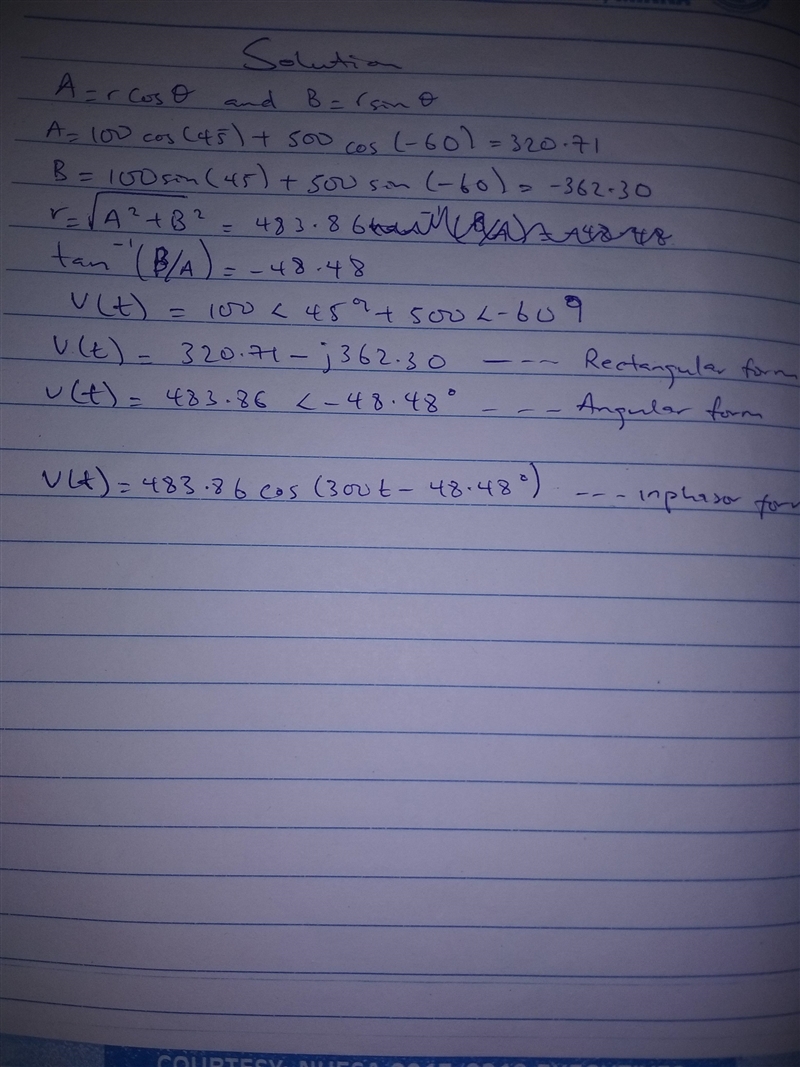 Solution
A = r cos θ and B = r sin θ
A = 100 cos(45) + 500 cos (-60) = 320.71
B = 100 sin(45) + 500 sin (-60) = -362.30
r = √A² + B² = 483.86
tan⁻¹ (B/A) = -48.48
V(t) = 100 < 45° + 500 < -60°
V(t) = 320.71 - j362.30 ---- Rectangular form
V(t) = 483.86 < -48.48° - - - Angular form
V(t) = 483.86 cos (300t - 48.48°) --- in phasor for
COURTESY